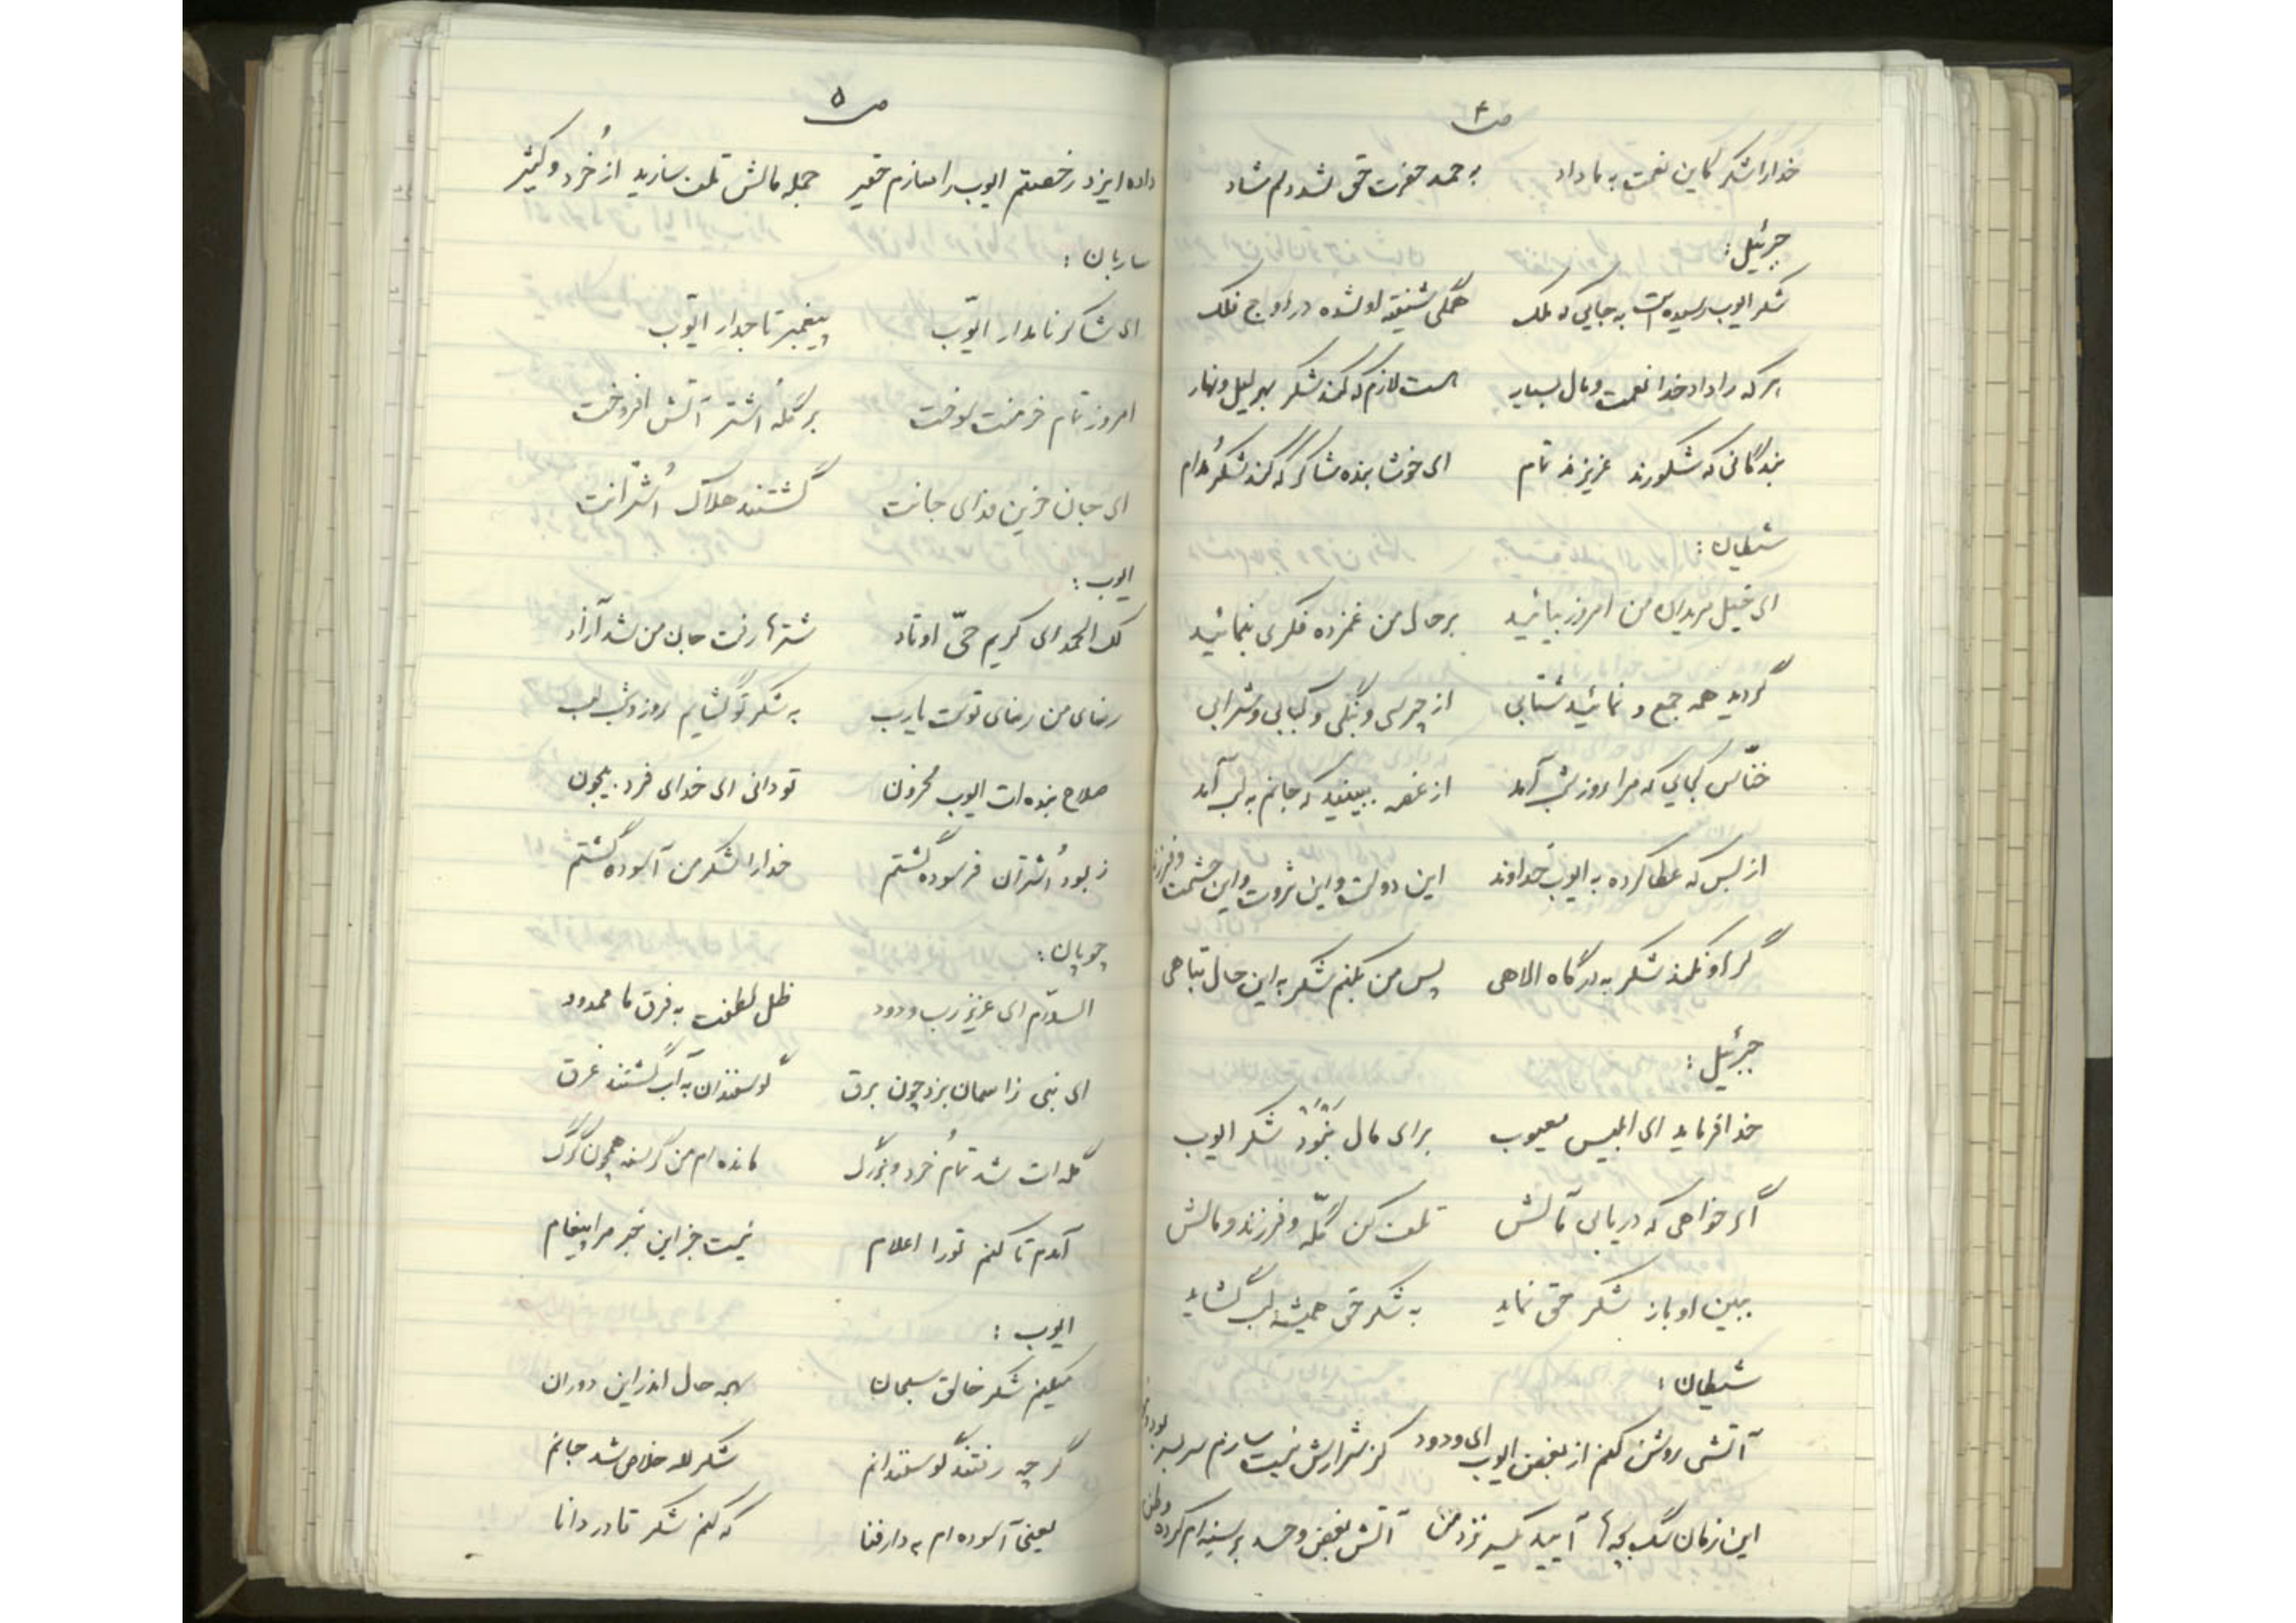 ص ۴
خدا را شکر کاین نعمت به ما داد به حمد حضرت حق شد دلم شاد
جبرئیل:
شکر ایوب رسیده است به جایی که ملک همگی شیفته او شده در اوج فلک
هر که را داد خدا نعمت و مال بسیار هست لازم که کند شکر بهر لیل و نهار
بندگانی که شکورند عزیزند تمام ای خوشا بنده شاکر که کند شکر مُدام
شیطان:
ای خیل مریدان من امروز بیائید بر حال من غمزده فکری بنمائید
گردید همه جمع و نمائید شتابی از چرسی و بنگی و کبابی و شرابی
خنّاس کجایی که مرا روز شب آمد از غصه ببینید که جانم به لب آمد
از بس که عطا کرده به ایوب خداوند این دولت و این ثروت و این حشمت و فرزند
گر او نکند شکر به درگاه الاهی پس من بکنم شکر به این حال تباهی
جبرئیل:
خدا فرماید ای ابلیس معیوب برای مال نبوَد شکر ایوب
اگر خواهی که دریابی تو حالش تلف کن گلّه و فرزند و مالش
ببین او باز شکر حق نماید به شکر حق همیشه لب گشاید
شیطان:
آتشی روشن کنم از بغض ایوب ای ودود کز شرارش نیست سازم سر بسر بود و
این زمان سگ بچه‌ها آیید یکسر نزد من آتش بغض و حسد بر سینه‌ام کرده وطن
ص ۵
داده ایزد رخصتم ایوب را سازم حقیر جمله مالش تلف سازید از خُرد و کثیر
ساربان:
ای شاکر نامدار ایّوب پیغمبر تاجدار ایّوب
امروز تمام خرمنت سوخت بر گله اُشتر آتش افروخت
ای جان حزین فدای جانت گشتند هلاک اُشترانت
ایوب:
لک الحمد ای کریم حیّ اوتاد شترها رفت جان من شد آزاد
رضای من رضای توست یا رب به شکر تو گشایم روز و شب لب
صلاح بنده‌ات ایوب محزون تو دانی ای خدای فرد بیچون
ز بود اُشتران فرسوده گشتم خدا را شکر من آسوده گشتم
چوپان:
السلام ای عزیز رب ودود ظل لطفت به فرق ما ممدود
ای نبی ز آسمان بزد چون برق گوسفندان به آب گشتند غرق
گله‌ات شد تمام خُرد و بزرگ مانده‌ام من گرسنه همچون گرگ
آمدم تا کنم تو را اعلام نیست جز این خبر مرا پیغام
ایوب:
میکنم شکر خالق سبحان بهر حال اندر این دوران
گرچه رفتند گوسفندانم شکر لله خلاص شد جانم
یعنی آسوده‌ام به دار فنا که کنم شکر قادر دانا